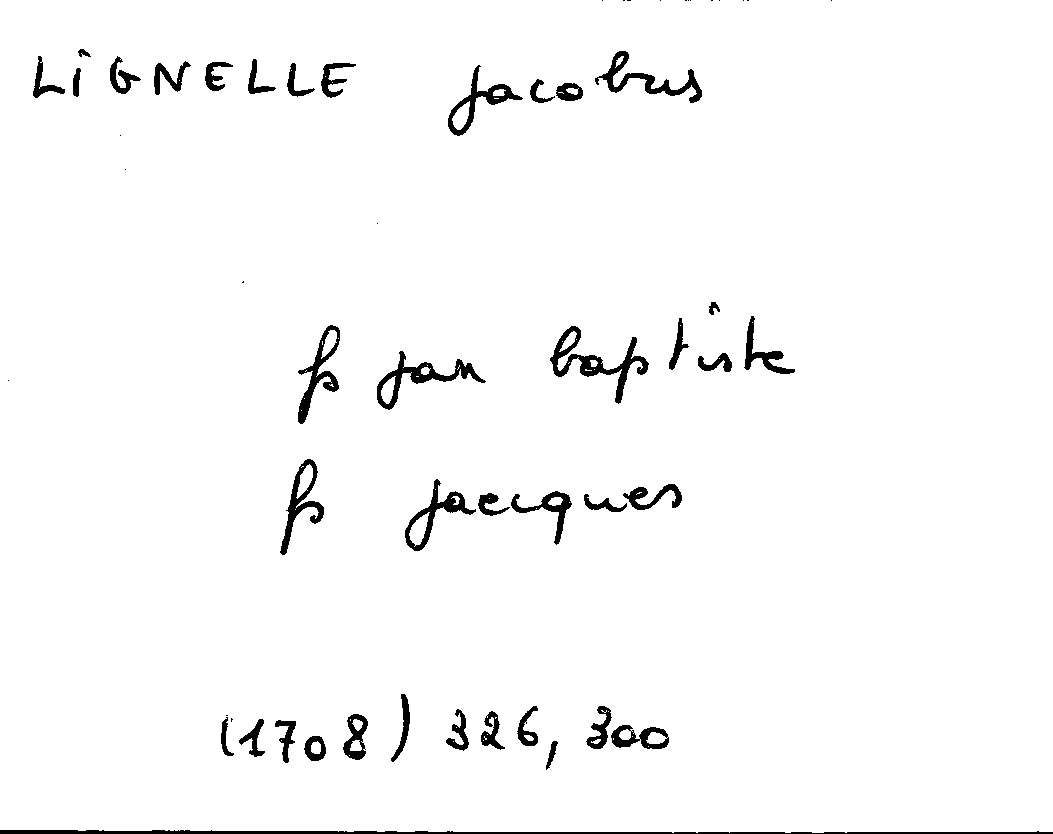 LIGNELLE jacobus
fs jan baptiste
fs jaecques
(1708) 326, 300